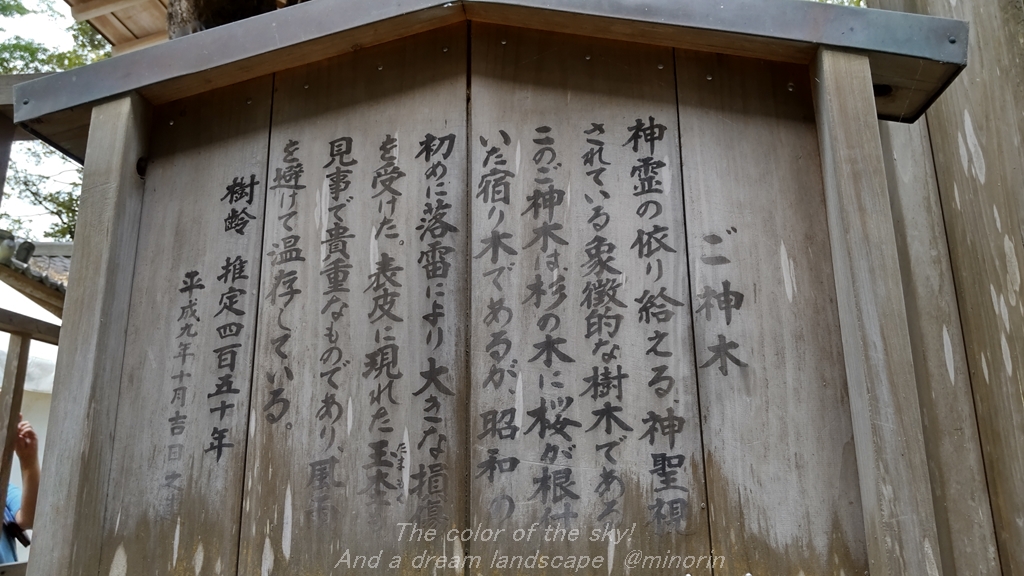 ご神木
神霊の依り給える、神聖視
されている象徴的な樹木である
このご神木は、杉の木に桜が根付
いた宿り木であるが、昭和の
初めに落雷により大きな損傷
を受けた。表皮に現れた玉木
見事で貴重なものであり、風雨
を避けて温存している。
樹齢 推定四百五十年
平成九年十月吉日
The color of the sky!
And a dream landscape @minorin